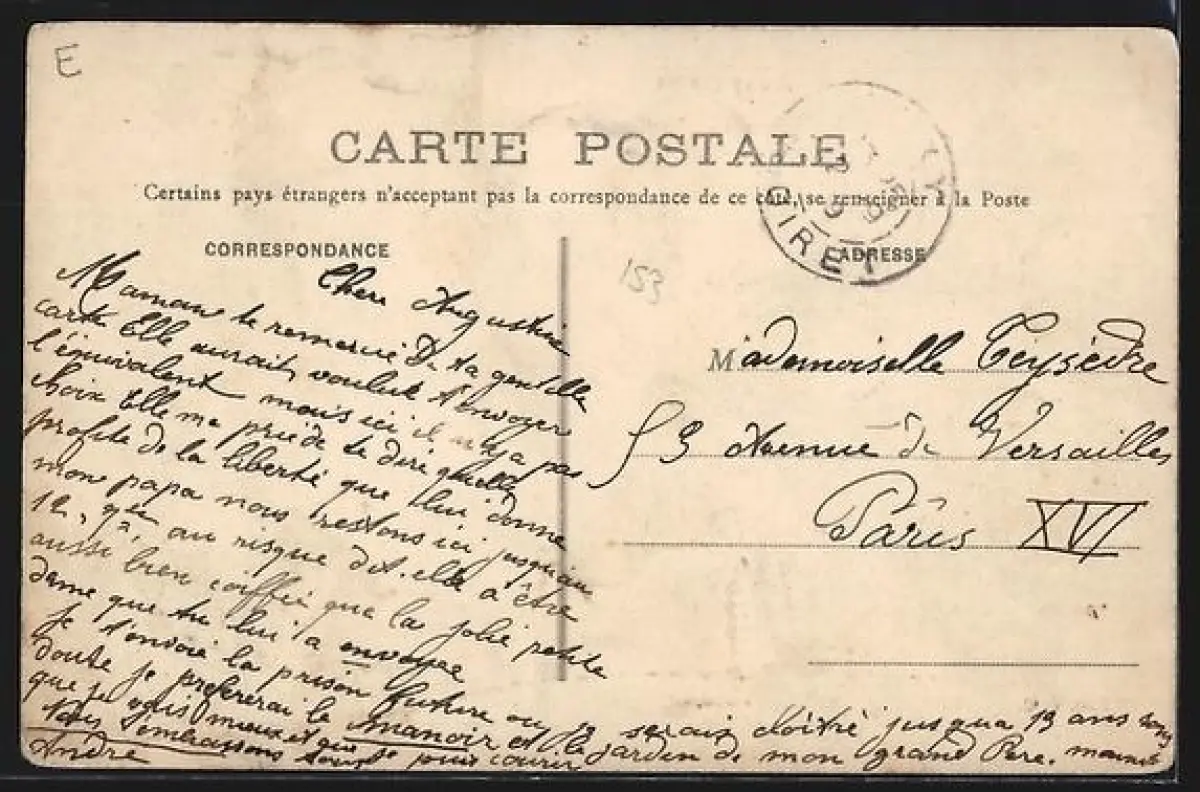 E
CARTE POSTALE
Certains pays étrangers n'acceptant pas la correspondance de ce côté, se renseigner à la Poste
CORRESPONDANCE
ADRESSE
153
Chere Augustine
Maman te remercie De ta gentille
carte Elle aurait voulut t'envoyer
l'équivalent mais ici il n'y a pas
choix Elle me prie de te dire quelle
profite de la liberté que lui donne
mon papa nous restons ici jusqu'au
12, au risque dit-elle a être
aussi bien coiffée que la jolie petite
dame que tu lui a envoyee
Je t'envoie la prison future ou je serais cloitré jusqua 13 ans
doute je prefererai le manoir et le jardin de mon grand Pere.
que je vais mieux et que je puis courir
Nous t'embrassons tous
André
Mademoiselle Teysèdre
53 Avenue de Versailles
Paris XVI
OIRET